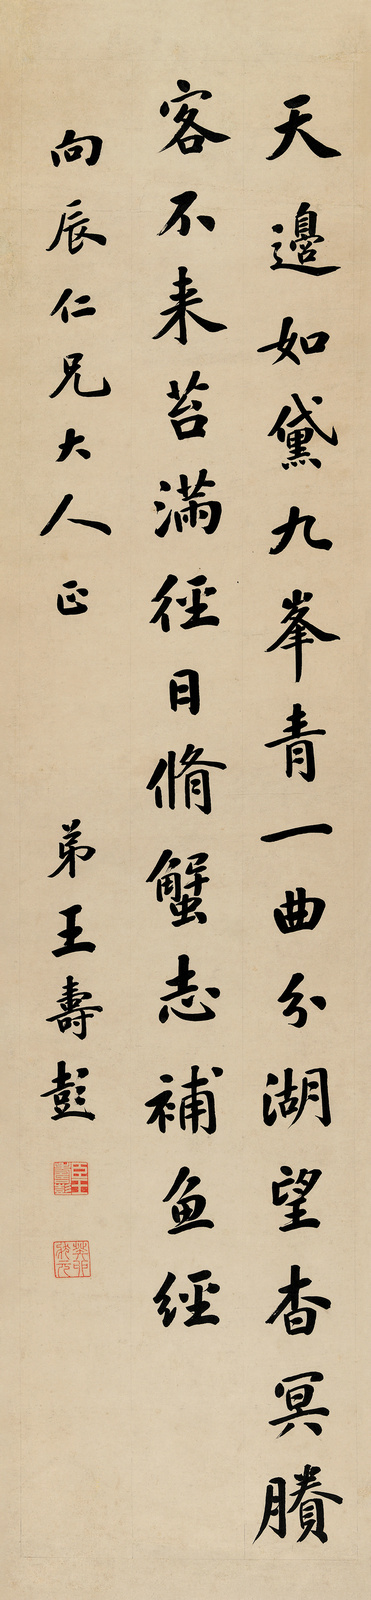 天邊如黛九峯青一曲分湖望杳冥賸
客不来苔滿徑日脩蟹志補魚經
向辰仁兄大人正
弟王壽彭
臣王壽彭
癸卯狀元